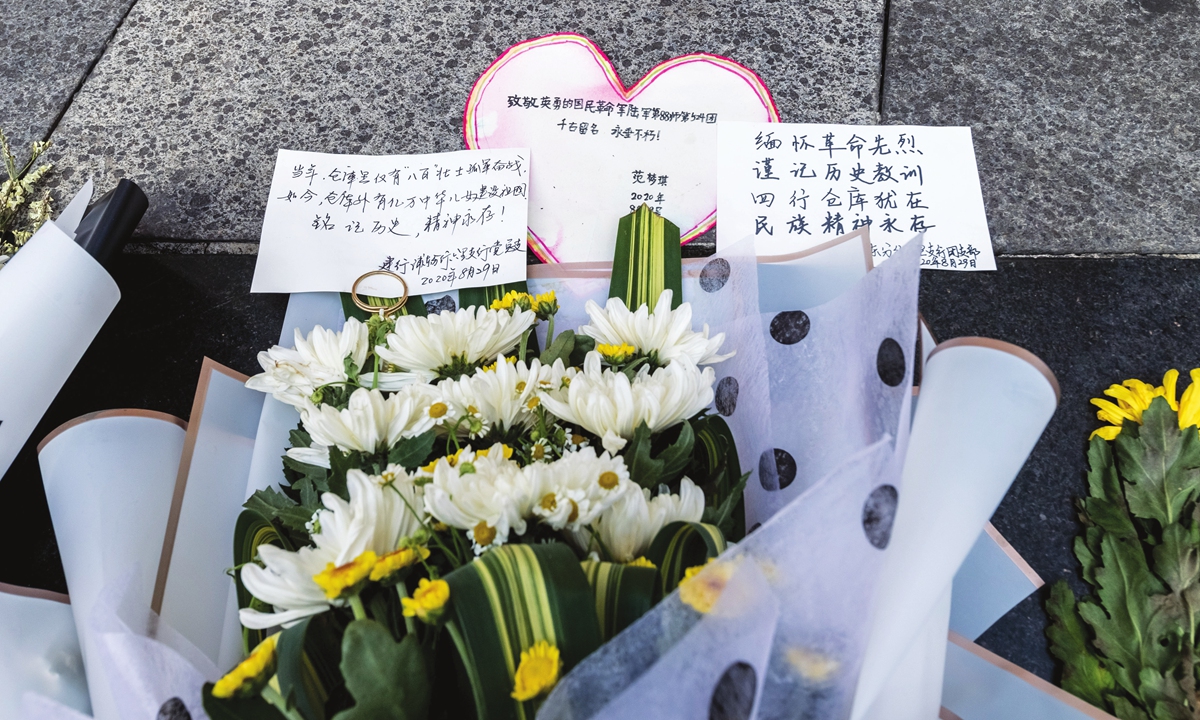 致敬英勇的国民革命军陆军第88师第524团
千古留名 永垂不朽！
范梦琪
2020年
当年，仓库里仅有"八百"壮士孤军奋战，
如今，仓库外有亿万中华儿女建设祖国
铭记历史，精神永存！
2020年8月29日
缅怀革命先烈
谨记历史教训
四行仓库犹在
民族精神永存
团支部
20年8月29日